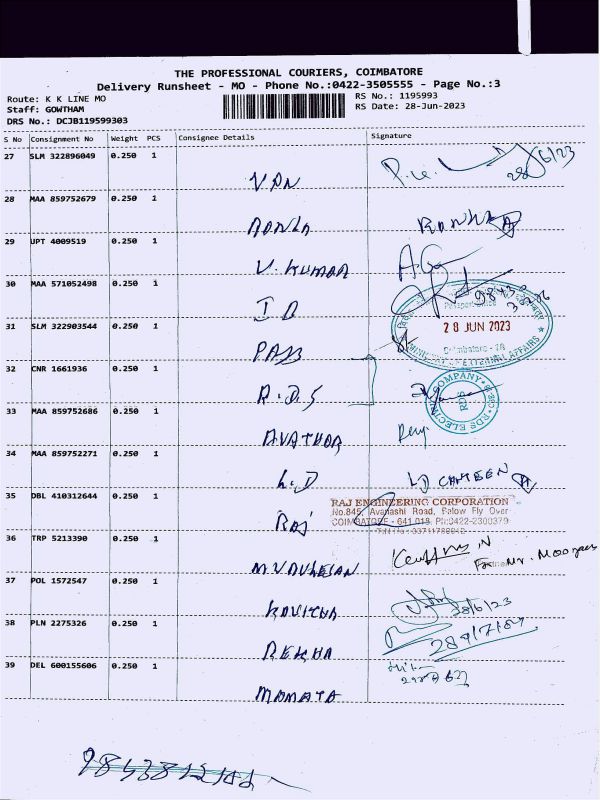 THE PROFESSIONAL COURIERS, COIMBATORE
Delivery Runsheet - MO - Phone No.:0422-3505555 - Page No.:3
Route: K K LINE MO
RS No.: 1195993
Staff: GOWTHAM
RS Date: 28-Jun-2023
DRS No.: DCJB119599303
S No Consignment No Weight PCS Consignee Details Signature
27 SLM 322896049 0.250 1
28/6/23
VPN
28 MAA 859752679 0.250 1
29 UPT 4009519 0.250 1
V. KUMAR
30 MAA 571052498 0.250 1
I D
28 JUN 2023
31 SLM 322903544 0.250 1
Coimbatore - 28
MINISTRY OF EXTERNAL AFFAIRS
32 CNR 1661936 0.250 1
R.D.S
RDS ELECTRIC COMPANY
RDS
33 MAA 859752686 0.250 1
34 MAA 859752271 0.250 1
L.D
LD CANTEEN
35 DBL 410312644 0.250 1
Raj
RAJ ENGINEERING CORPORATION
No.845, Avanashi Road, Below Fly Over
COIMBATORE - 641 018. PH:0422-2300379
36 TRP 5213390 0.250 1
For Mr.
37 POL 1572547 0.250 1
KAVITHA
28/6/23
38 PLN 2275326 0.250 1
REKHA
39 DEL 600155606 0.250 1
MAMATA